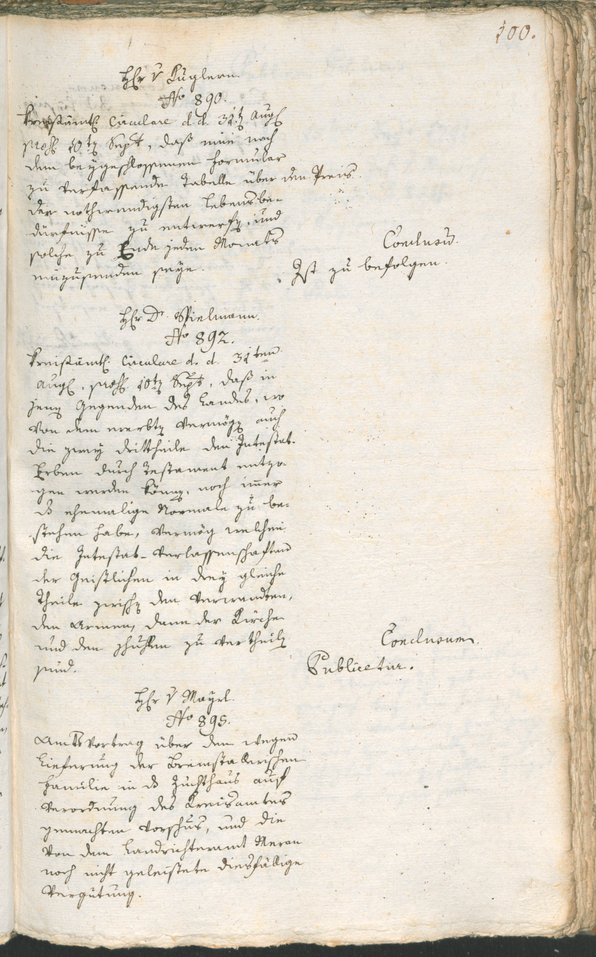 100.
Hr v Kuglern
No 890.
Kreisämtl Circulare d. d. 31ten Augst
praes. 10ten Sept, daß man nach
dem beygeschlossenen Formular
zu verfassende Tabelle über den Preis
der nothwendigsten Lebensbe-
dürfnisse zu entwerfen, und
solche zu Ende jeden Monats
einzusenden seye.
Conclusum
Ist zu befolgen.
Hr Dr Spielmann.
No 892.
Kreisämtl. Circulare d. d. 31ten
Augst, praes 10ten Sept, daß in
jenen Gegenden des Landes, wo
von dem ererbten Vermögen auch
die zwey Drittheile den Intestat-
Erben durch Testament entzo-
gen werden können, noch immer
die ehemalige Normale zu be-
stehen habe, vermög welcher
die Intestat-Verlassenschaften
der Geistlichen in drey gleiche
Theile zwischen den Verwandten,
den Armen, dann der Kirche
und den Schullen zu vertheilen
seind.
Conclusum
Publicetur.
Hr v Mayrl.
No 895.
Amtsvortrag über den wegen
Lieferung der
Familie in das Zuchthaus auf
Verordnung des Kreisamtes
gemachten Vorschus, und die
von dem Landrichteramt Meran
noch nicht geleistete diesfällige
Vergütung.